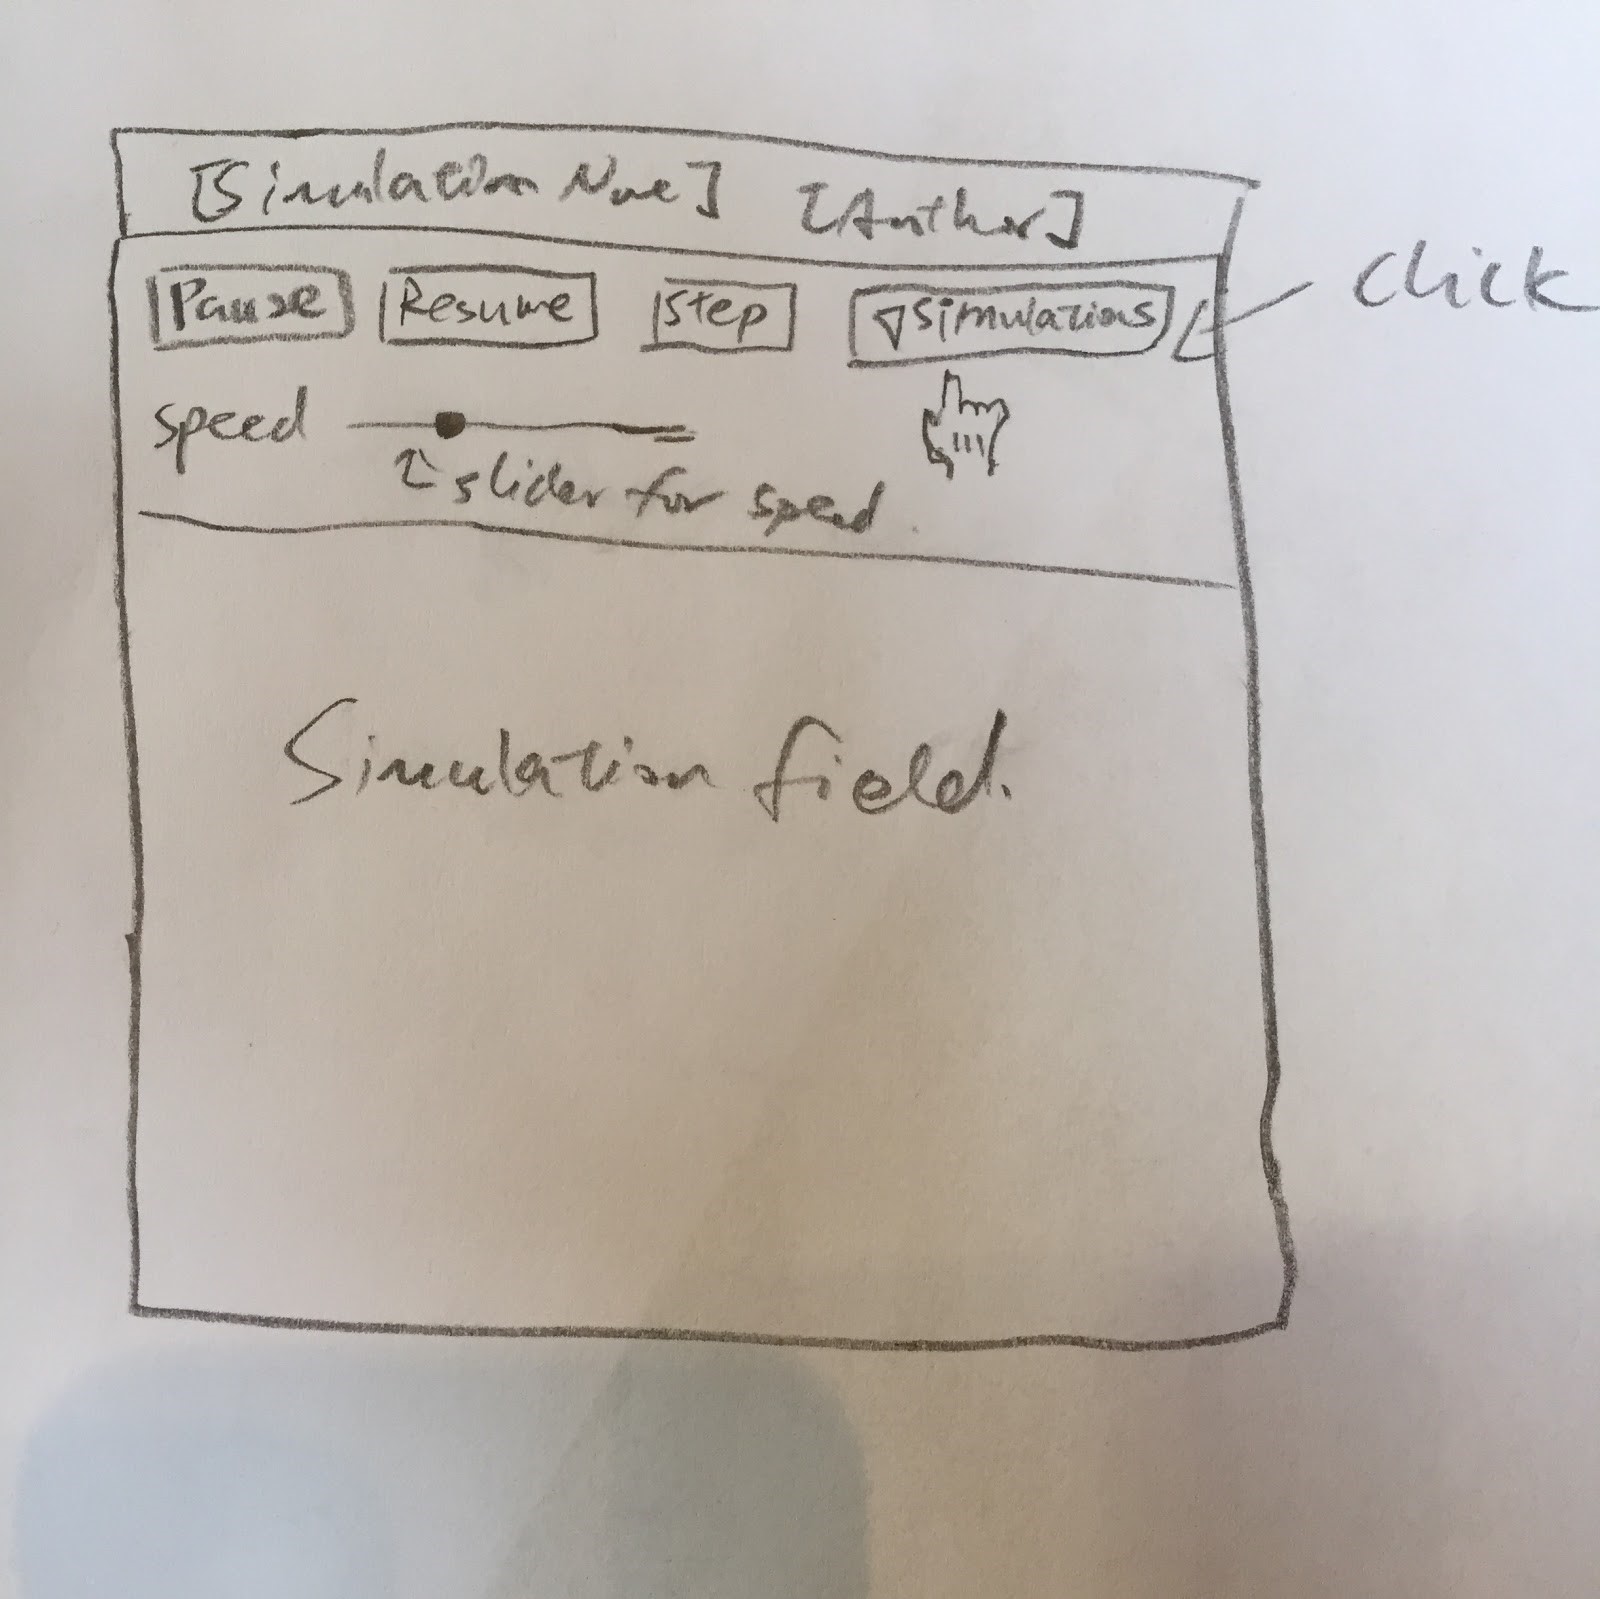 [Simulation Name] [Author]
Pause Resume Step ▽Simulations Click
speed
↑ slider for speed.
Simulation field.